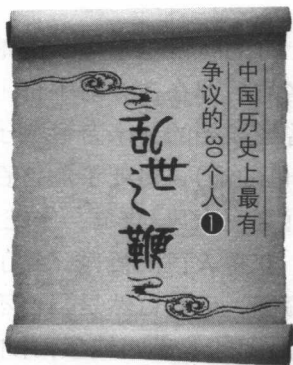 中国历史上最有
争议的30个人❶
乱世之鞭